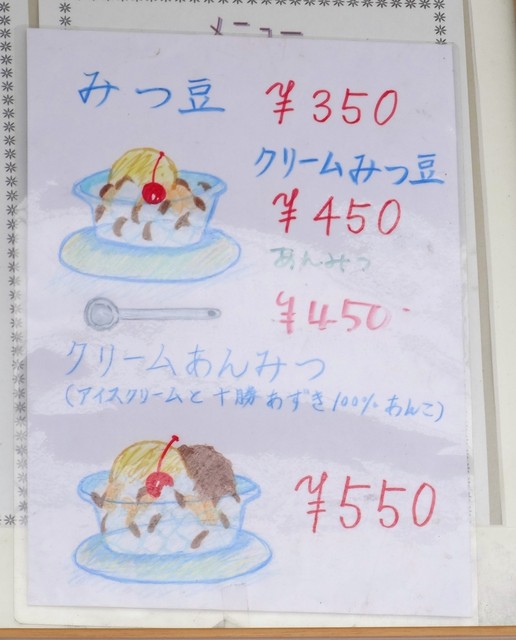 メニュー
みつ豆 ¥350
クリームみつ豆
¥450
あんみつ
¥450
クリームあんみつ
(アイスクリームと十勝あずき100%あんこ)
¥550